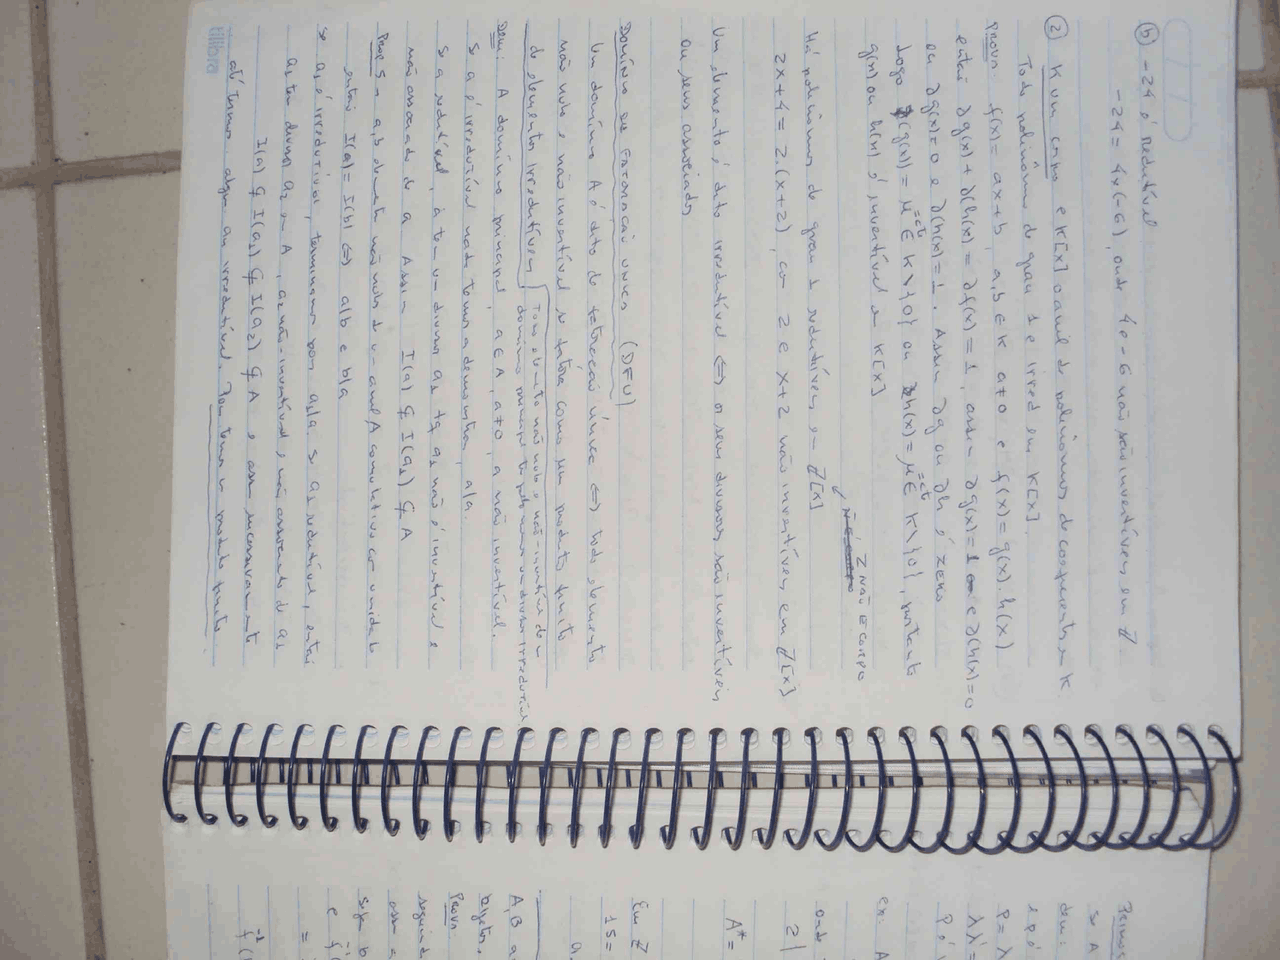 (b) -24 é redutível
-24 = 4x(-6), onde 4 e -6 não são invertíveis em Z.
(2) K um corpo e K[x] o anel d polinômios d coeficientes em K.
Todo polinômio de grau 1 é irred em K[x].
Prova: f(x) = ax+b, a,b ∈ K a≠0 e f(x) = g(x).h(x)
então ∂g(x) + ∂(h(x)) = ∂f(x) = 1, assim ∂g(x)=1 e ∂(h(x))=0
ou ∂g(x)=0 e ∂(h(x))=1. Assim ∂g ou ∂h é zero
Logo (g(x)) = μ ∈ K\{0} ou h(x) = μ ∈ K\{0}, portanto
=cte =cte
g(x) ou h(x) é invertível em K[x]
Z NÃO É CORPO
Há polinômios de grau 1 redutíveis em Z[x]
2x+4 = 2.(x+2), com 2 e x+2 não invertíveis em Z[x]
Um elemento é dito irredutível ⇔ os seus divisores são invertíveis
ou seus associados
Domínio de Fatoração única (DFU)
Um domínio A é dito de fatoração única ⇔ todo elemento
não nulo e não invertível se fatora como um produto finito
de elementos irredutíveis
Todo elemento não nulo e não-invertível de um
domínio principal pelo menos um divisor irredutível
Dem: A domínio principal, a ∈ A, a≠0, a não invertível.
Se a é irredutível nada temos a demonstrar, a|a.
Se a redutível, a tem um divisor a₁ tq a₁ não é invertível e
não associado de a. Assim I(a) ⊊ I(a₁) ⊊ A
Prop 5 a,b elementos não nulos d um anel A comutativo com unidade
então I(a) = I(b) ⇔ a|b e b|a
Se a₁ é irredutível, terminamos pois a₁|a. Se a₁ redutível, então
a₁ tem divisor a₂ em A, a₂ não-invertível e não associado de a₁
I(a) ⊊ I(a₁) ⊊ I(a₂) ⊊ A e assim sucessivamente
até termos algum an irredutível.
tilibra
se A
P = λ
λλ'=
P é
ex: A
onde
2|
A* =
Em Z
15 =
A,B
Prova
Seja b
e f⁻¹
=
f⁻¹(